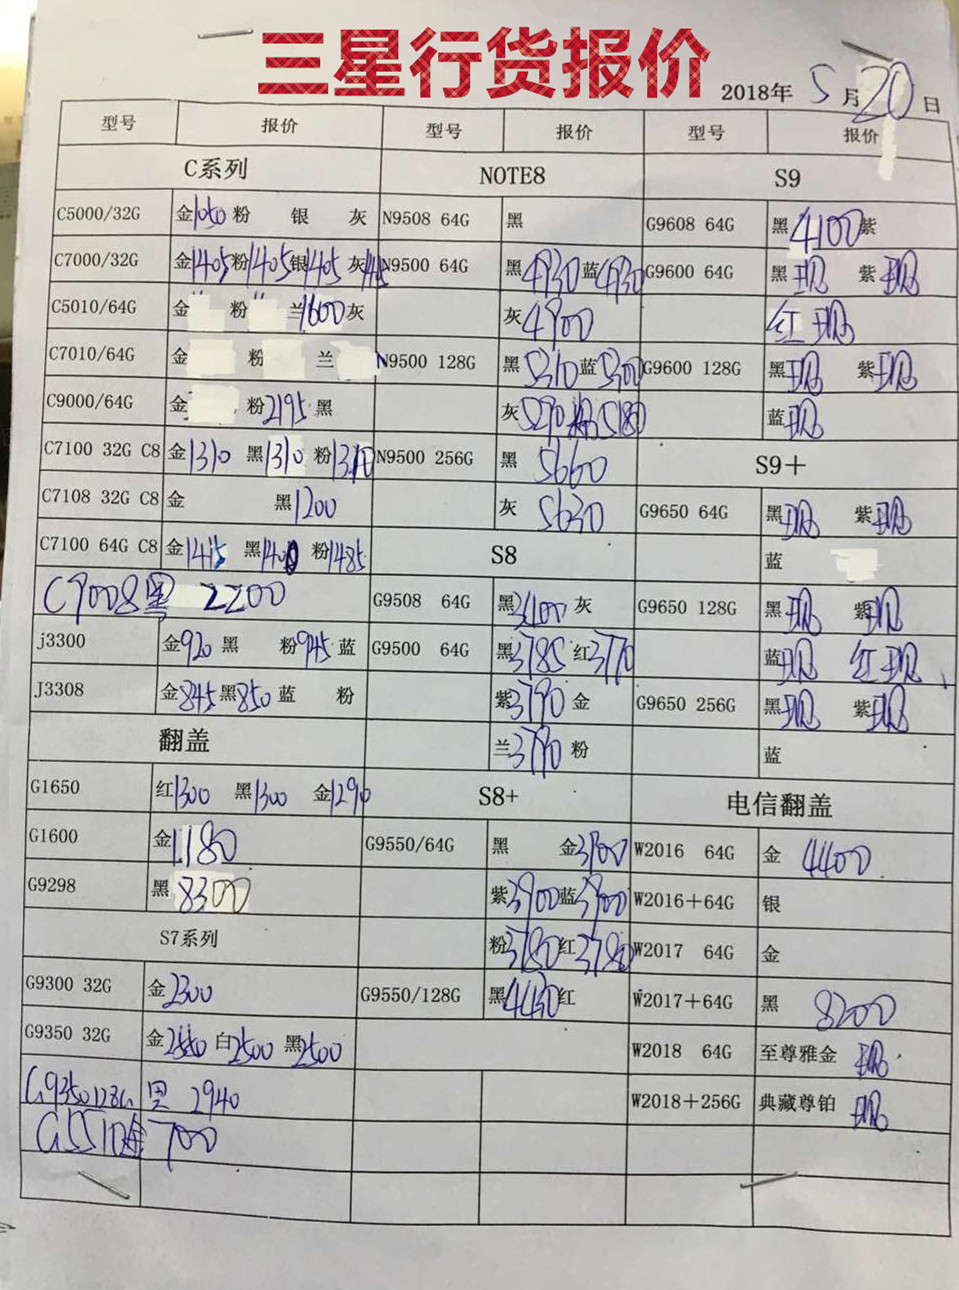 三星行货报价
2018年 5 月 20 日
型号 报价 型号 报价 型号 报价
C系列 NOTE8 S9
C5000/32G 金1050 粉 银 灰 N9508 64G 黑 G9608 64G 黑4100紫
C7000/32G 金1405粉1405银1405 灰 N9500 64G 黑4930蓝4930 G9600 64G 黑现 紫现
C5010/64G 金 粉 兰1600灰 灰4900 红 现
C7010/64G 金 粉 兰 N9500 128G 黑5310蓝5300 G9600 128G 黑现 紫现
C9000/64G 金 粉2195黑 灰5290粉5180 蓝现
C7100 32G C8 金1310 黑1310 粉1310 N9500 256G 黑 5660 S9+
C7108 32G C8 金 黑1200 灰 5630 G9650 64G 黑现 紫现
C7100 64G C8 金1415 黑1400 粉1485 S8 蓝
C9008黑 2200 G9508 64G 黑3400灰 G9650 128G 黑现 紫现
j3300 金920 黑 粉945蓝 G9500 64G 黑3785红3770 蓝现 红现
J3308 金845黑850蓝 粉 紫3790金 G9650 256G 黑现 紫现
翻盖 兰3790粉 蓝
G1650 红1300 黑1300 金1290 S8+ 电信翻盖
G1600 金1180 G9550/64G 黑 金3900 W2016 64G 金 4400
G9298 黑8300 紫3900蓝3900 W2016+64G 银
S7系列 粉3780红3780 W2017 64G 金
G9300 32G 金2300 G9550/128G 黑4430红 W2017+64G 黑 8200
G9350 32G 金2550 白2500 黑2500 W2018 64G 至尊雅金 现
G9350128G 黑 2940 W2018+256G 典藏尊铂 现
G5510金 700